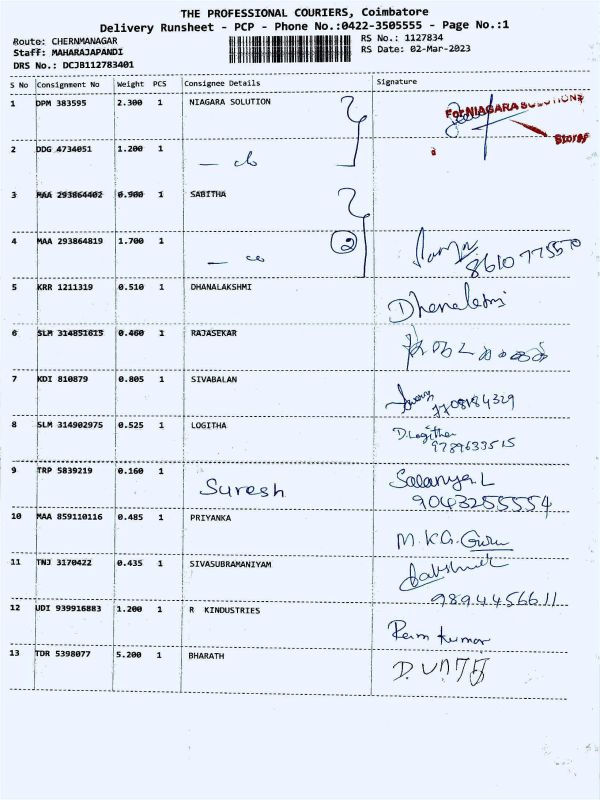 THE PROFESSIONAL COURIERS, Coimbatore
Delivery Runsheet - PCP - Phone No.:0422-3505555 - Page No.:1
Route: CHERNMANAGAR
RS No.: 1127834
Staff: MAHARAJAPANDI
RS Date: 02-Mar-2023
DRS No.: DCJB112783401
S No Consignment No Weight PCS Consignee Details Signature
1 DPM 383595 2.300 1 NIAGARA SOLUTION
For NIAGARA SOLUTIONS
Stores
2 DDG 4734051 1.200 1
3 MAA 293864402 0.900 1 SABITHA
4 MAA 293864819 1.700 1
2
8610775570
5 KRR 1211319 0.510 1 DHANALAKSHMI
6 SLM 314851615 0.460 1 RAJASEKAR
7 KDI 810879 0.805 1 SIVABALAN
8 SLM 314902975 0.525 1 LOGITHA
D.Logitha
9789633515
9 TRP 5839219 0.160 1
Suresh
9043255554
10 MAA 859110116 0.485 1 PRIYANKA
M.KG.Guru
11 TNJ 3170422 0.435 1 SIVASUBRAMANIYAM
9894456611
12 UDI 939916883 1.200 1 R KINDUSTRIES
Ram kumar
13 TDR 5398077 5.200 1 BHARATH